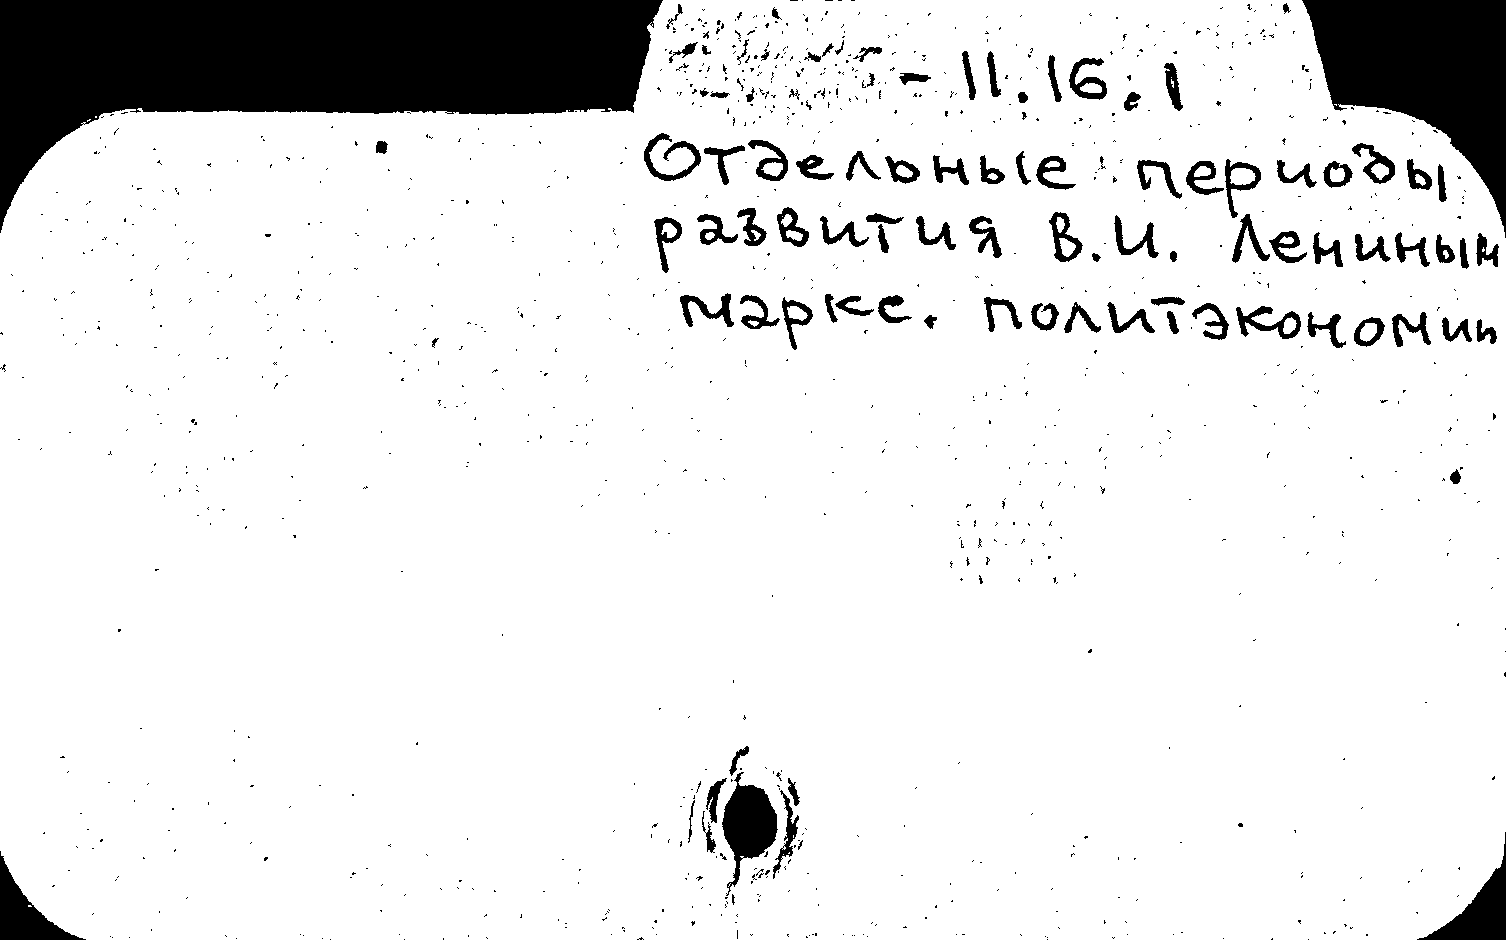 - 11.16.1
Отдельные периоды
развития В.И. Лениным
маркс. политэкономии